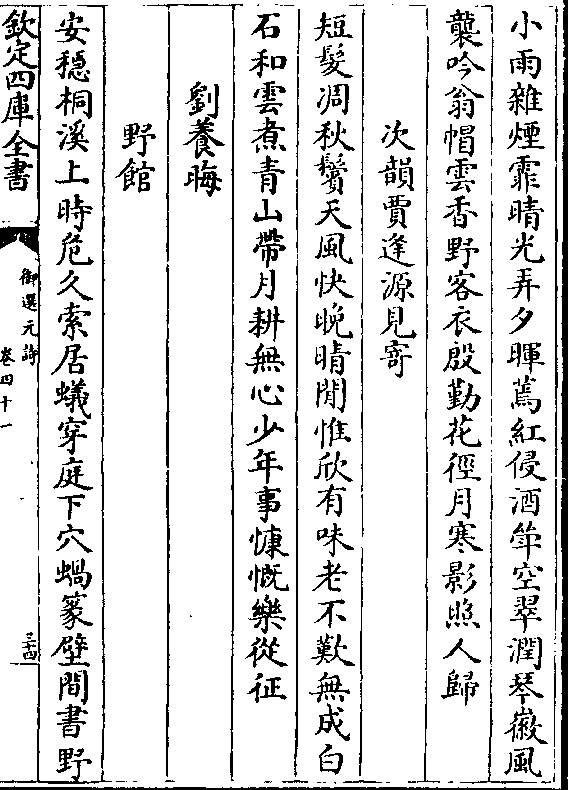 小雨雜煙霏晴光弄夕暉蔫紅侵酒斚空翠潤琴徽風
襲吟翁帽雲香野客衣殷勤花徑月寒影照人歸
次韻賈逢源見寄
短髮凋秋鬢天風快晚晴閒惟欣有味老不歎無成白
石和雲煮青山帶月耕無心少年事慷慨樂從征
劉養晦
野館
安穩桐溪上時危久索居蟻穿庭下穴蝸篆壁間書野
欽定四庫全書
御選元詩
卷四十一
三十四